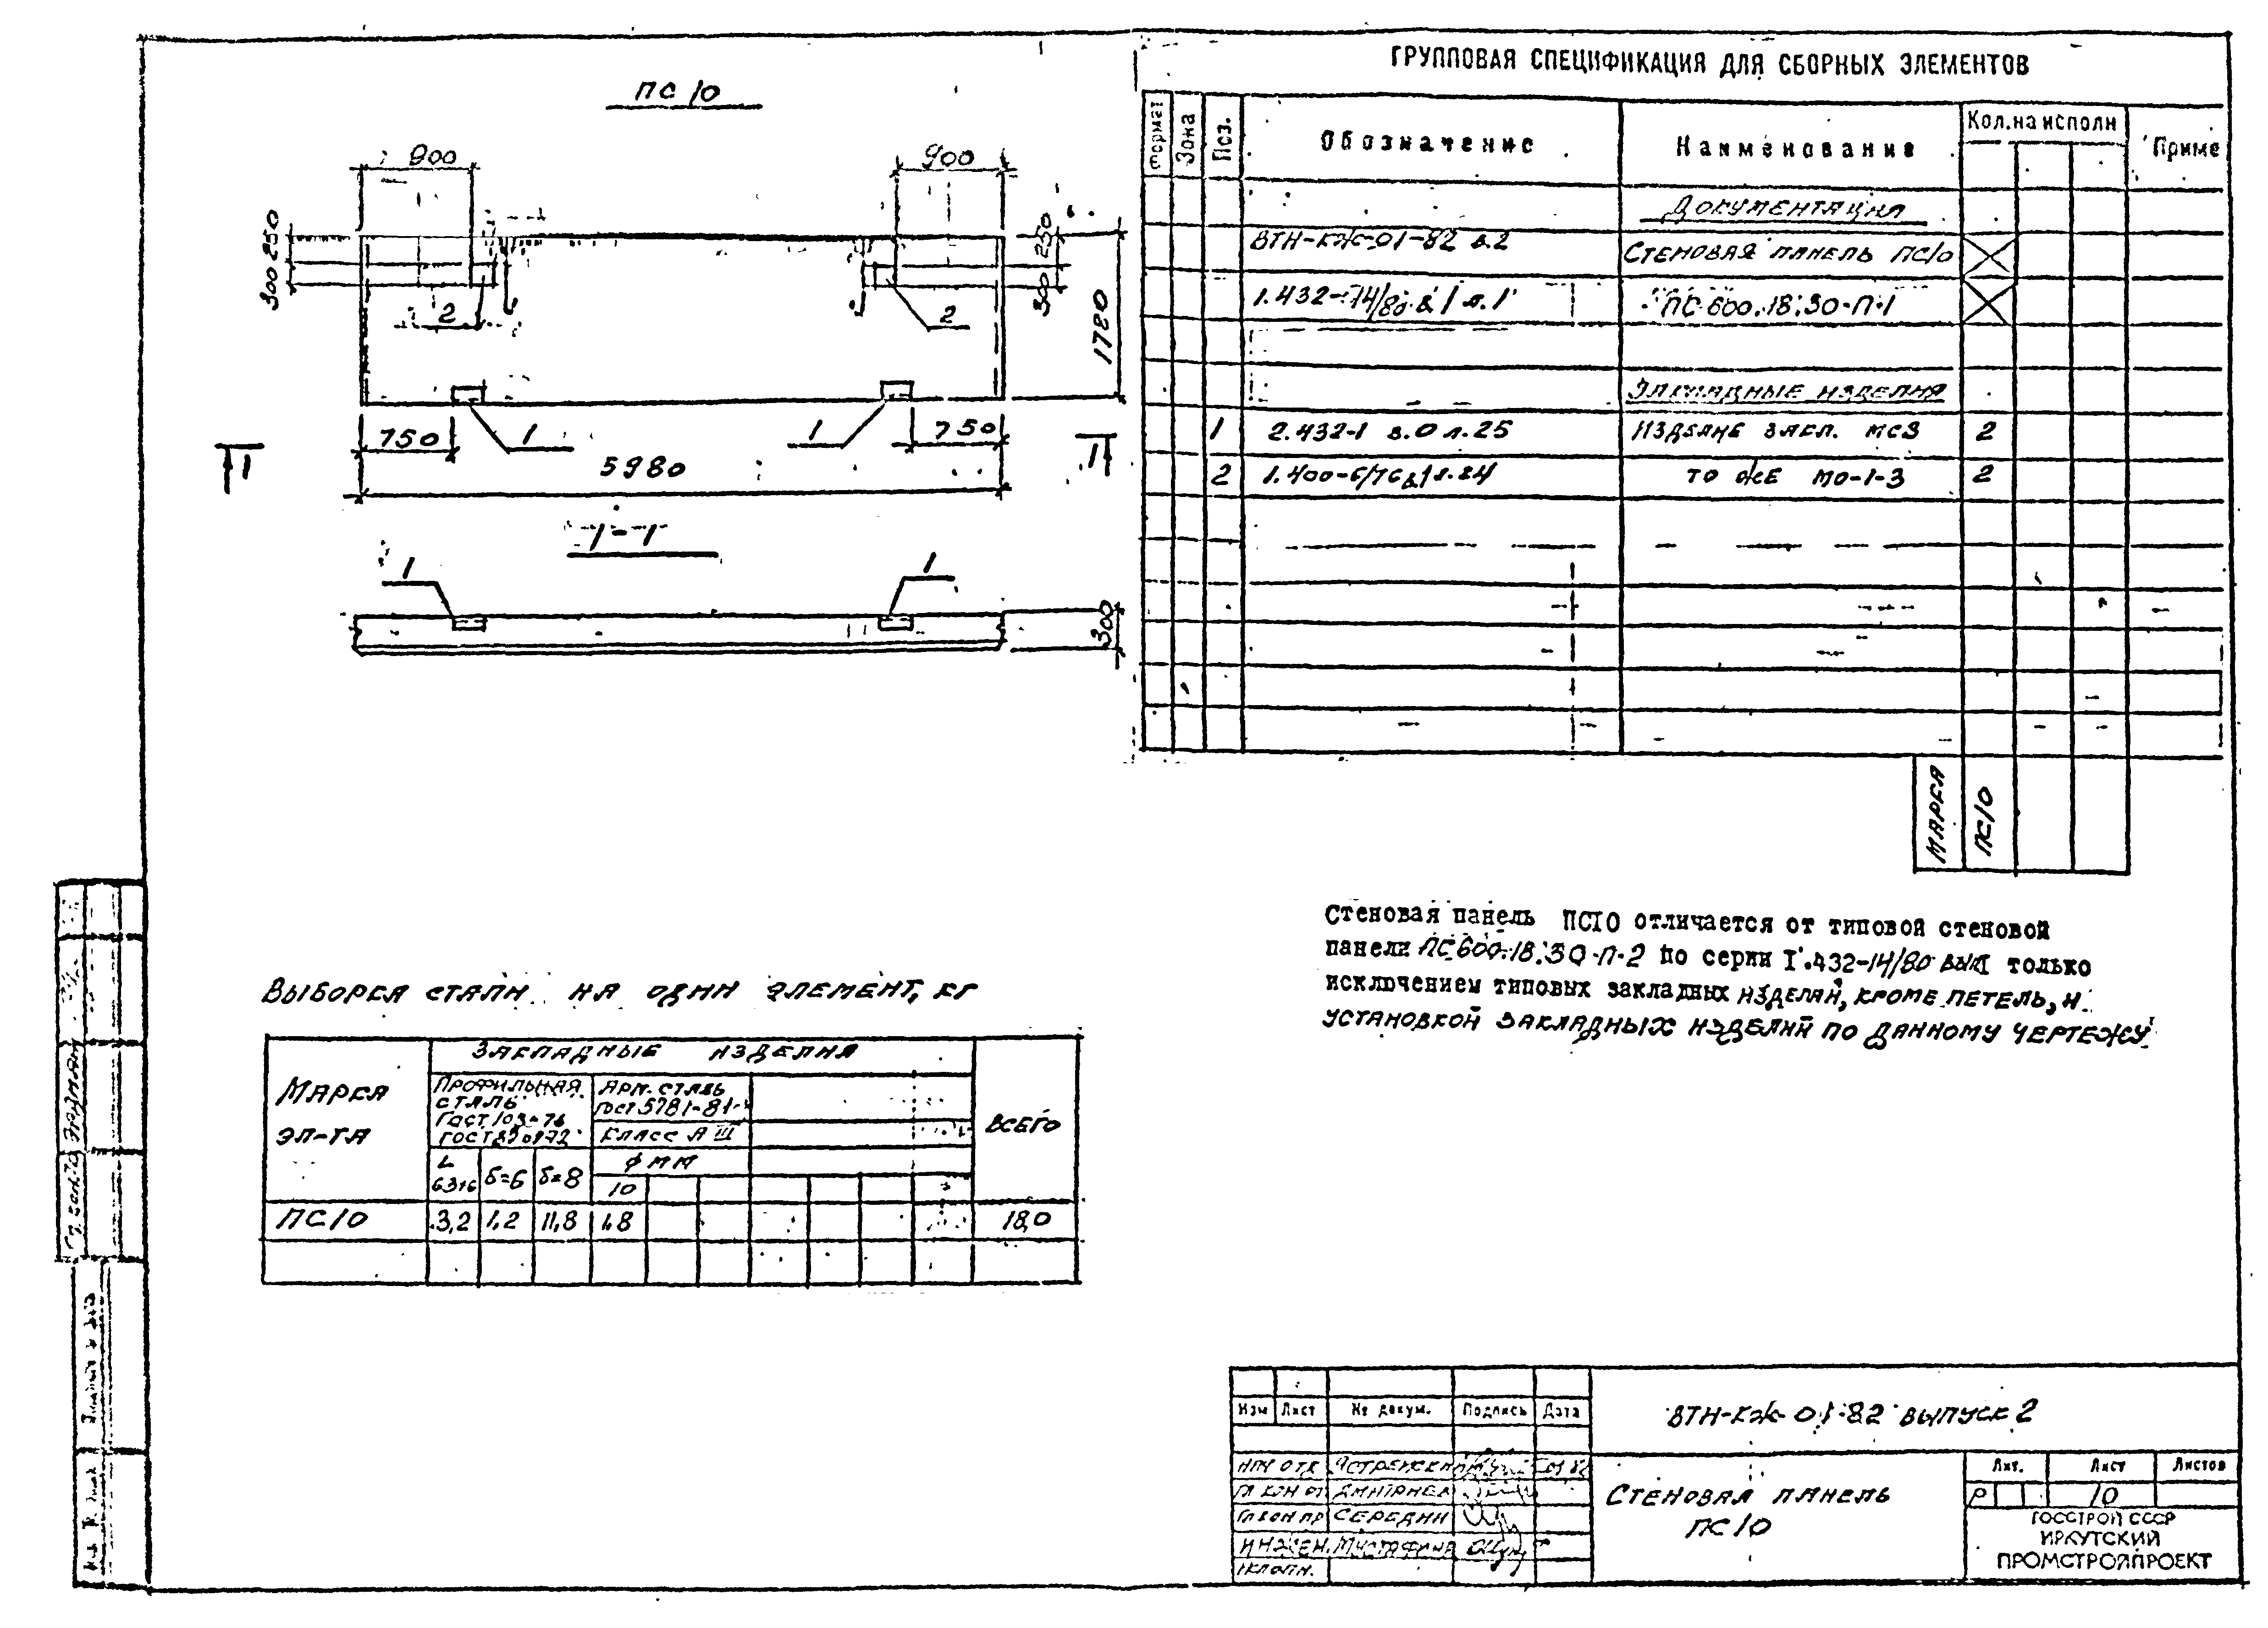 ПС 10
900
900
250
300
250
300
2
2
1780
1
1
750
750
1
5980
1
1-1
1
1
300
ГРУППОВАЯ СПЕЦИФИКАЦИЯ ДЛЯ СБОРНЫХ ЭЛЕМЕНТОВ
Формат
Зона
Поз.
Обозначение
Наименование
Кол. на исполн
Приме
Документация
ВТН-КЖ-01-82 в.2
Стеновая панель ПС10
1.432-14/80 в.1 л.1
ПС 600.18.30-П-1
Закладные изделия
1 2.432-1 в.0 л.25 Изделие закл. МС3 2
2 1.400-6/76 в.1 л.24 то же МО-1-3 2
МАРКА
ПС10
Стеновая панель ПС10 отличается от типовой стеновой
панели ПС 600.18.30-П-2 по серии I.432-14/80 вып.1 только
исключением типовых закладных изделий, кроме петель, и
установкой закладных изделий по данному чертежу
Выборка стали на один элемент, кг
Марка
эл-та
Закладные изделия
Всего
Профильная
сталь
Гост 103-76
Арм. сталь
Гост 5781-81
Класс А III
L
63×6
б=6
б=8
ф мм
10
ПС10 3,2 1,2 11,8 1,8 18,0
Изм Лист № докум. Подпись Дата
ВТН-КЖ-01-82 выпуск 2
Нач отд
Гл кон от
Гл кон пр Середин
Инжен. Мустафина
Н.контр.
Стеновая панель
ПС10
Лит. Лист Листов
Р 10
ГОССТРОЙ СССР
ИРКУТСКИЙ
ПРОМСТРОЙПРОЕКТ